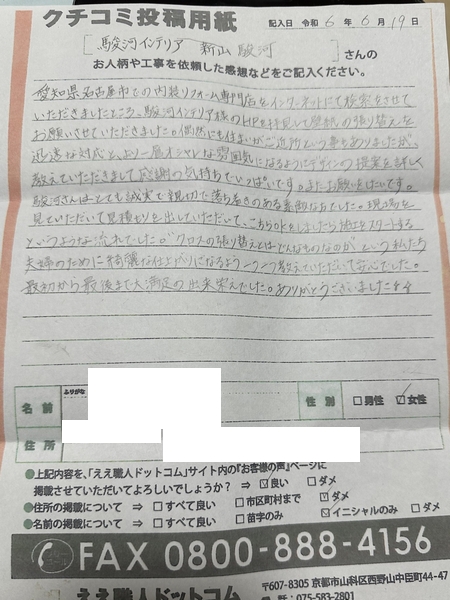 クチコミ投稿用紙
記入日 令和 6 年 6 月 19 日
[駿河インテリア 新山 駿河] さんの
お人柄や工事を依頼した感想などをご記入ください。
愛知県名古屋市での内装リフォーム専門店をインターネットにて検索をさせて
いただきましたところ、駿河インテリア様のHPを拝見して壁紙の張り替えを
お願いさせていただきました。偶然にも住まいがご近所という事もありましたが、
迅速な対応と、より一層オシャレな雰囲気になるようにデザインの提案を詳しく
教えていただきまして感謝の気持ちでいっぱいです。またお願いをしたいです。
駿河さんはとても誠実で親切で落ち着きのある素敵な方でした。現場を
見ていただいて見積もりを出していただいて、こちらOKをしましたら施工をスタートする
というような流れでした。"クロスの張り替えとはどんなものなのか"という私たち
夫婦のために綺麗な仕上がりになるよう一つ一つ教えていただいて安心でした。
最初から最後まで大満足の出来栄えでした。ありがとうございました
ふりがな
名前
性別 □男性 ☑女性
住所
●上記内容を、「ええ職人ドットコム」サイト内の『お客様の声』ページに
掲載させていただいてよろしいでしょうか？ ⇒ ☑良い □ダメ
●住所の掲載について ⇒ □すべて良い □市区町村まで ☑ダメ
●名前の掲載について ⇒ □すべて良い □苗字のみ ☑イニシャルのみ □ダメ
FAX 0800-888-4156
ええ職人ドットコム
〒607-8305 京都市山科区西野山中臣町44-47
電話：075-583-2801